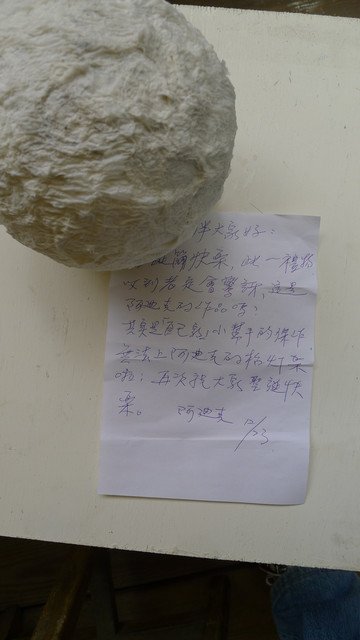 伴大家好:
誕節快樂,此一禮物
收到者是會驚訝,這是
阿迪克的作品嗎?
其實是自己和小幫手的傑作
無法上阿迪克的粉
啦;再次祝大家聖誕快
樂。 阿迪克 12/23